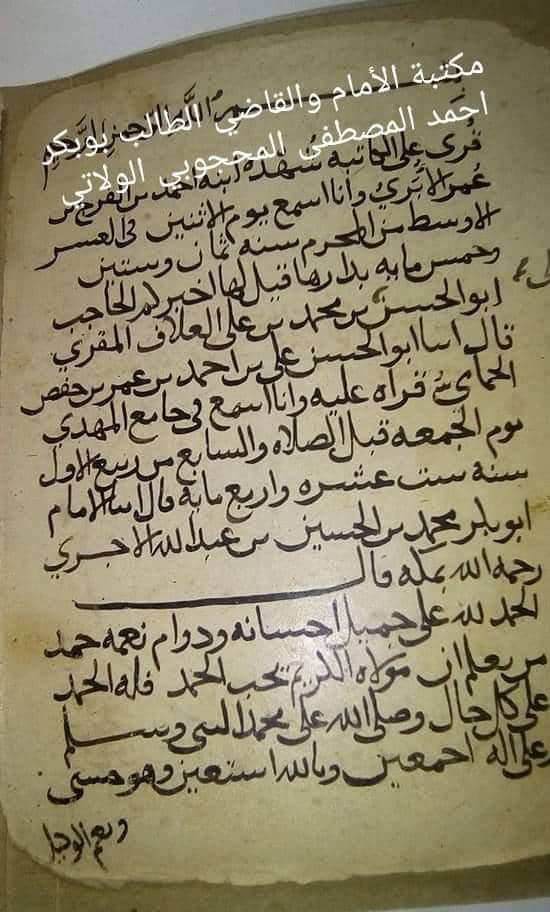 مكتبة الأمام والقاضي الطالب بوبكر
احمد المصطفى المحجوبي الولاتي
بسم الله الرحمن الرحيم
قرى على الكاتبة شهدة ابنة احمد بن الفرج بن
عمر الابري وانا اسمع يوم الاثنين فى العشر
الاوسط من المحرم سنة ثمان وستين
وخمس مايه بدارها قيل لها اخبركم الحاجب
ابو الحسن بن محمد بن على العلاف المقري
قال اسا ابو الحسن على بن احمد بن عمر بن حفص
الحمامي قراه عليه وانا اسمع فى جامع المهدي
يوم الجمعه قبل الصلاه والسابع من ربيع الاول
سنة ست عشره واربع مايه قال اسا الامام
ابو بكر محمد بن الحسين بن عبد الله الاجري
رحمه الله بمكه قال
الحمد لله على جميل احسانه ودوام نعمه حمد
من يعلم ان مولاه الكريم يحب الحمد فله الحمد
على كل حال وصلى الله على محمد النبى وسلم
وعلى اله اجمعين وبالله استعين وهو حسبى
ونعم الوكيل